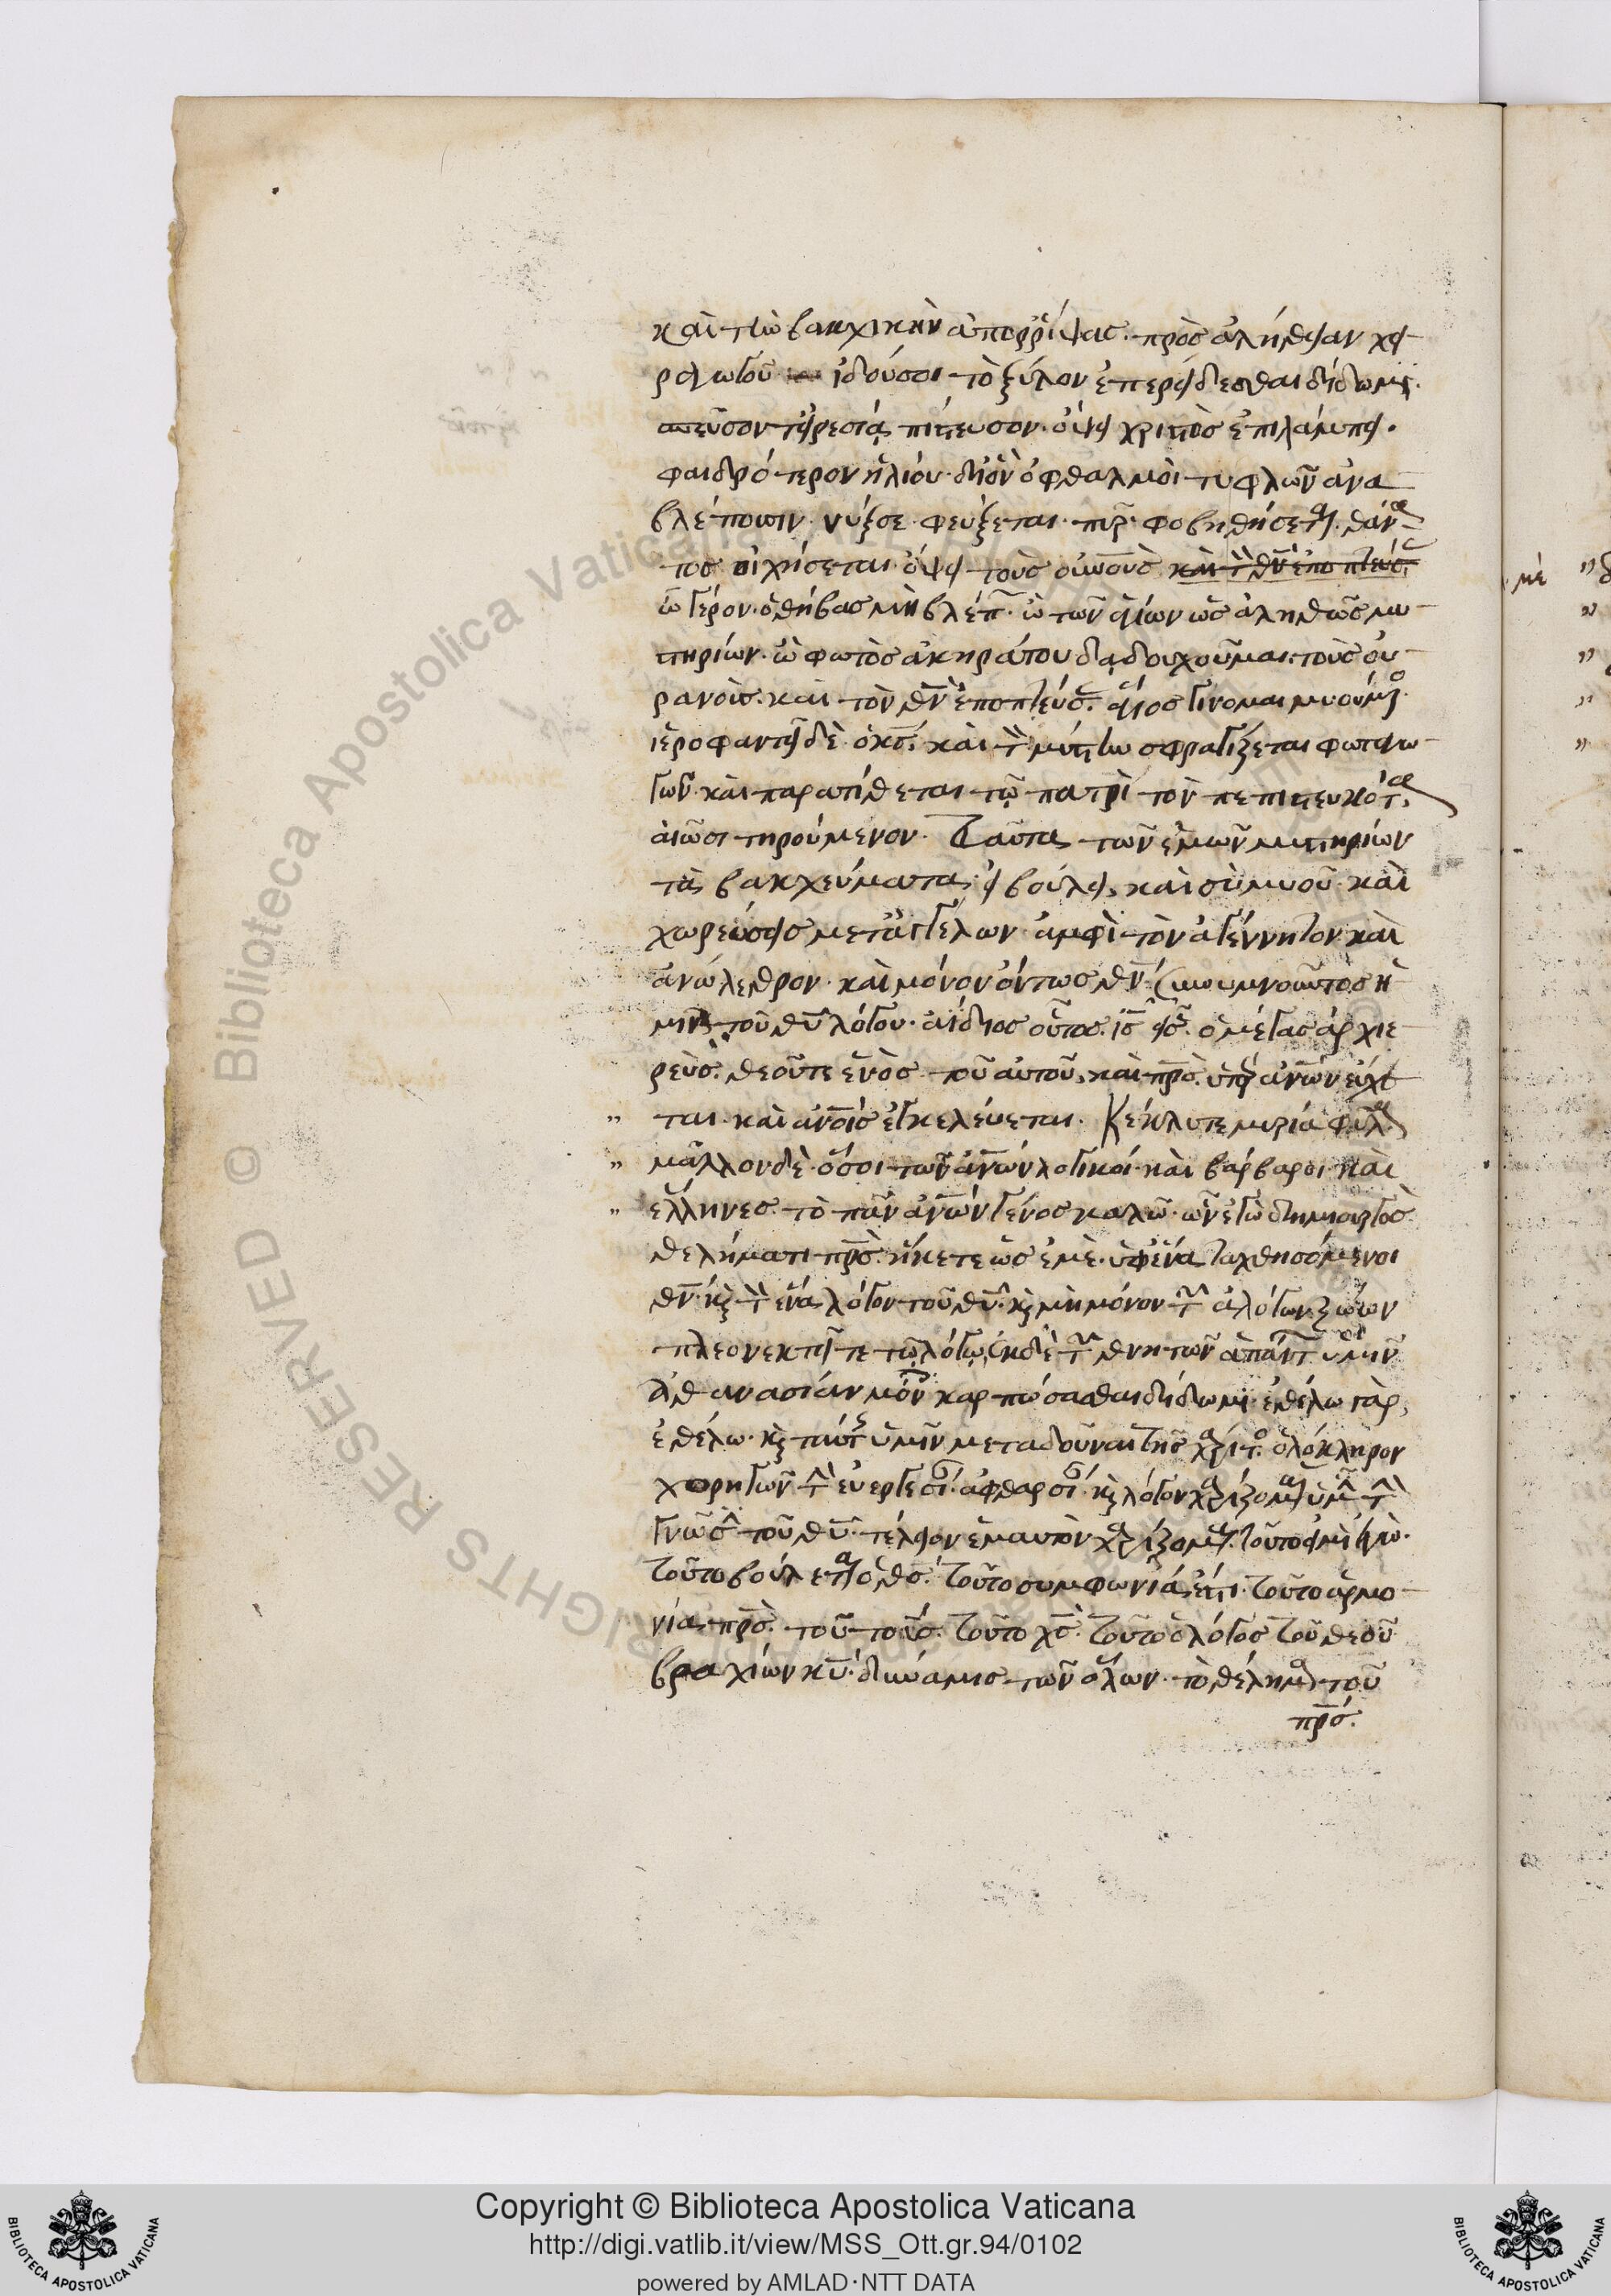 καὶ τὴν βακχικὴν ἀπορρίψας. πρὸς ἀλήθειαν χει
ραγωγοῦ ἰδού σοι τὸ ξύλον ἐπερείδεσθαι δίδωμι.
σπεῦσον τειρεσία, πίστευσον. ὄψει χριστὸς ἐπιλάμπει.
φαιδρότερον ἡλίου. δι' ὃν ὀφθαλμοὶ τυφλῶν ἀνα
βλέπουσιν. νύξ σε φεύξεται. πῦρ φοβηθήσεται. θάνα
τος οἰχήσεται. ὄψει τοὺς οὐνοὺς καὶ τὸν θν ἐποπτεύσ
ὦ γέρον. ὁ θήβας μὴ βλέπ. ὢ τῶν ἁγίων ὡς ἀληθῶς μυ
στηρίων. ὢ φωτὸς ἀκηράτου δᾳδουχοῦμαι τοὺς οὐ
ρανοὺς. καὶ τὸν θν ἐποπτεύσ. ἅγιος γίνομαι μυούμενος.
ἱεροφαντεῖ δὲ ὁ κς. καὶ τὸν μύστην σφραγίζεται φωταγω
γῶν. καὶ παρατίθεται τῷ πατρὶ τὸν πεπιστευκότα
αἰῶσι τηρούμενον. Ταῦτα τῶν ἐμῶν μυστηρίων
τὰ βακχεύματα. εἰ βούλει, καὶ σὺ μυοῦ. καὶ
χωρεύσεις μετ' ἀγγέλων ἀμφὶ τὸν ἀγέννητον καὶ
ἀνώλεθρον. καὶ μόνον ὄντως θν. συνυμνοῦντος ἡ
μῖν τοῦ θυ λόγου. ἀΐδιος οὗτος. ις εἷς. ὁ μέγας ἀρχιε
ρεὺς. θεοῦ τε ἑνὸς τοῦ αὐτοῦ, καὶ πρς. ὑπὲρ ἀνων εὔχε
" ται καὶ ἀνοις ἐγκελεύεται. Κέκλυτε μυρία φῦλα
" μᾶλλον δὲ ὅσοι τῶν ἀνων λογικοί. καὶ βάρβαροι καὶ
" ἕλληνες. τὸ πᾶν ἀνων γένος καλῶ. ὧν ἐγὼ δημιουργὸς
θελήματι πρς. ἥκετε ὡς ἐμὲ. ὑφ' ἕνα ταχθησόμενοι
θν. κ τὸν ἕνα λόγον τοῦ θυ. κ μὴ μόνον τῶν ἀλόγων ζώων
πλεονεκτεῖτε τῷ λόγῳ. ἐκ δὲ τῶν θνητῶν ἁπάντ ὑμῖν
ἀθανασίαν μόν καρπώσασθαι δίδωμι. ἐθέλω γὰρ,
ἐθέλω. κ ταύτης ὑμῖν μεταδοῦναι τῆς χάριτος. ὁλόκληρον
χορηγῶν τὴν εὐεργεσί. ἀφθαρσί. κ λόγον χαρίζομαι ὑμῖν τὴν
γνῶσιν τοῦ θυ. τέλειον ἐμαυτὸν χαρίζομαι. τοῦτό εἰμι ἐγώ.
τοῦτο βούλεται ὁ θς. τοῦτο συμφωνία ἐστί. τοῦτο ἁρμο
νία πρς. τοῦτο υς. τοῦτο χς. τοῦτο ὁ λόγος τοῦ θεοῦ
βραχίων κυ. δύναμις τῶν ὅλων. τὸ θέλημα τοῦ
πρς.
Copyright © Biblioteca Apostolica Vaticana
http://digi.vatlib.it/view/MSS_Ott.gr.94/0102
powered by AMLAD·NTT DATA